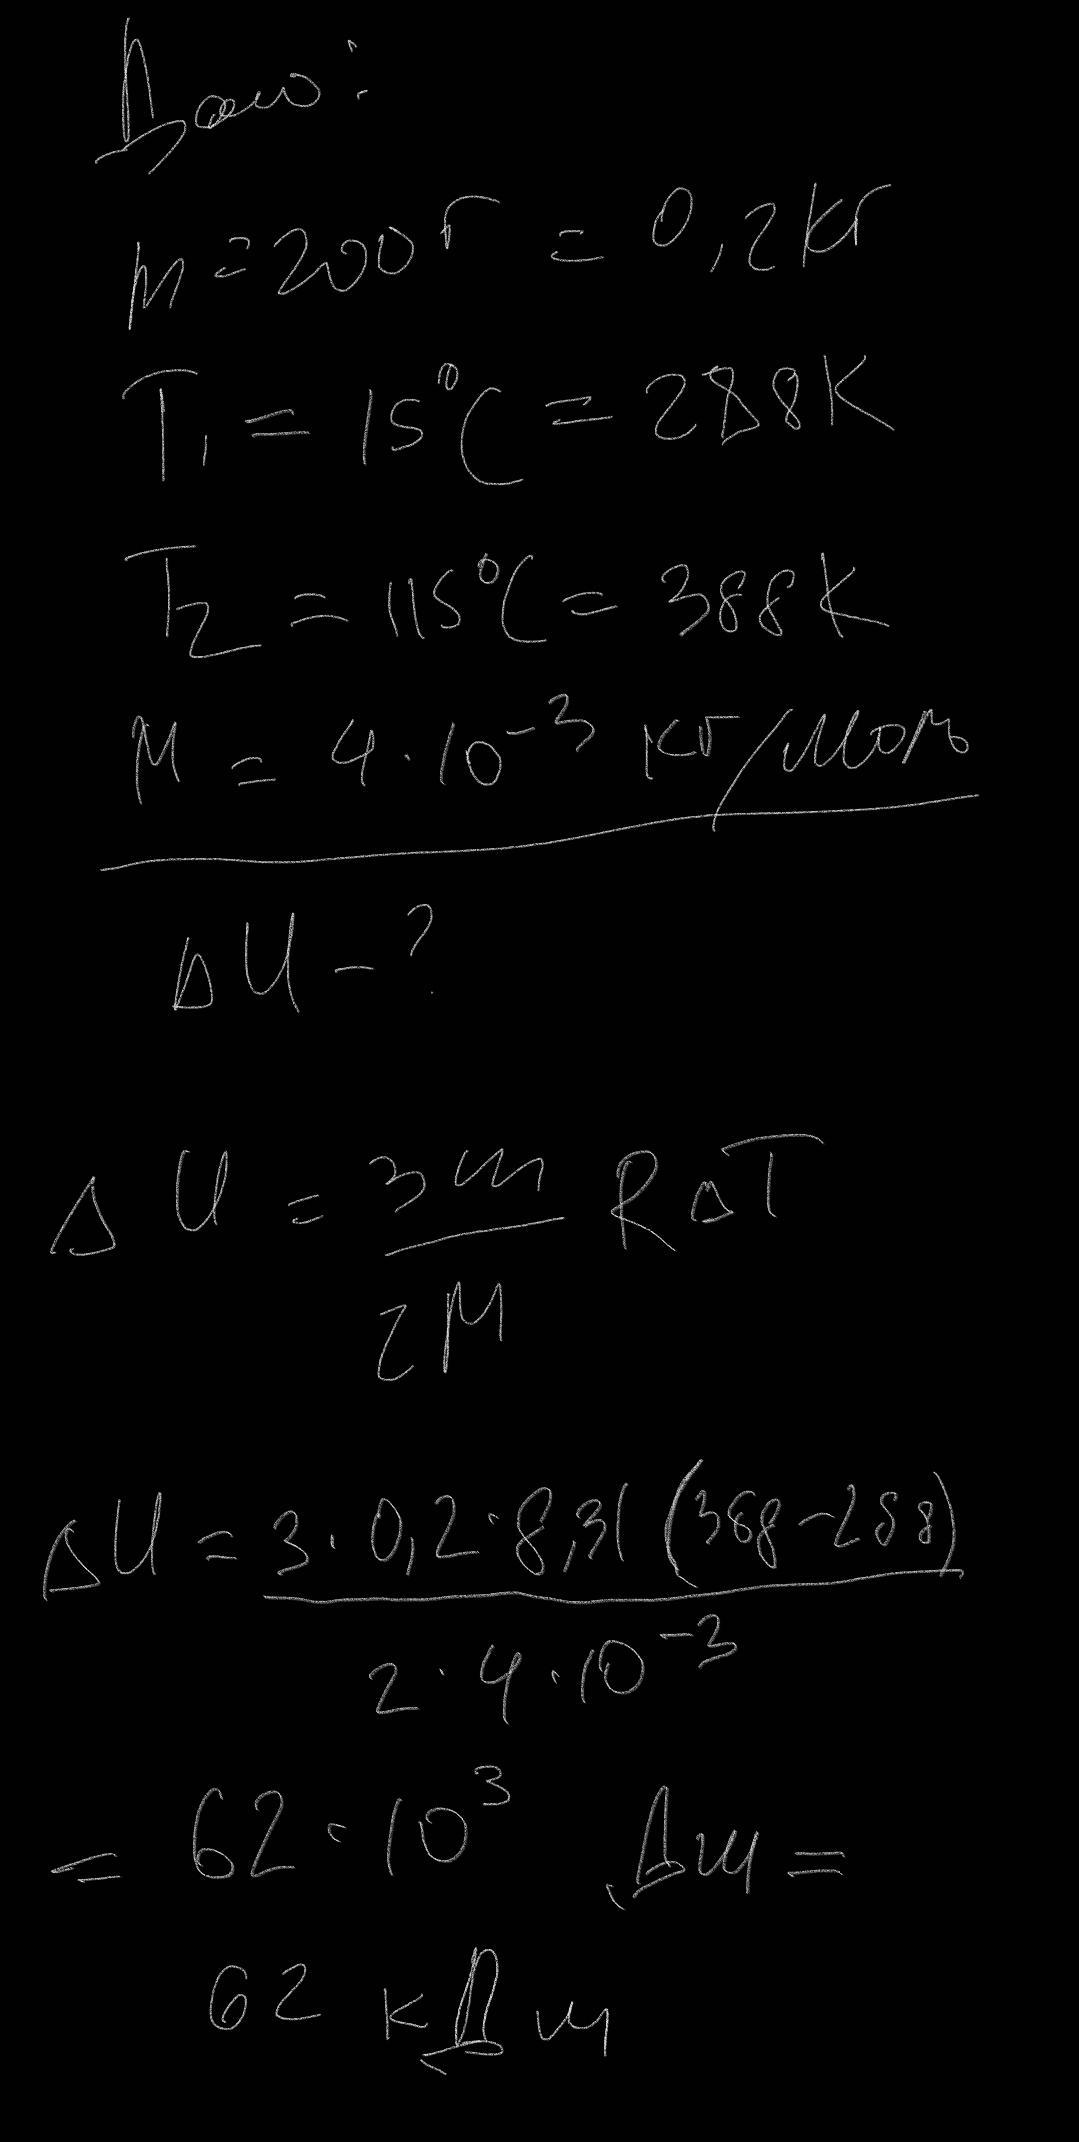 Дано:
m = 200 г = 0,2 кг
T₁ = 15°C = 288 K
T₂ = 115°C = 388 K
M = 4·10⁻³ кг/моль
ΔU - ?
ΔU = 3m/2M RΔT
ΔU = 3·0,2·8,31 (388-288)
2·4·10⁻³
= 62·10³ Дж =
62 кДж